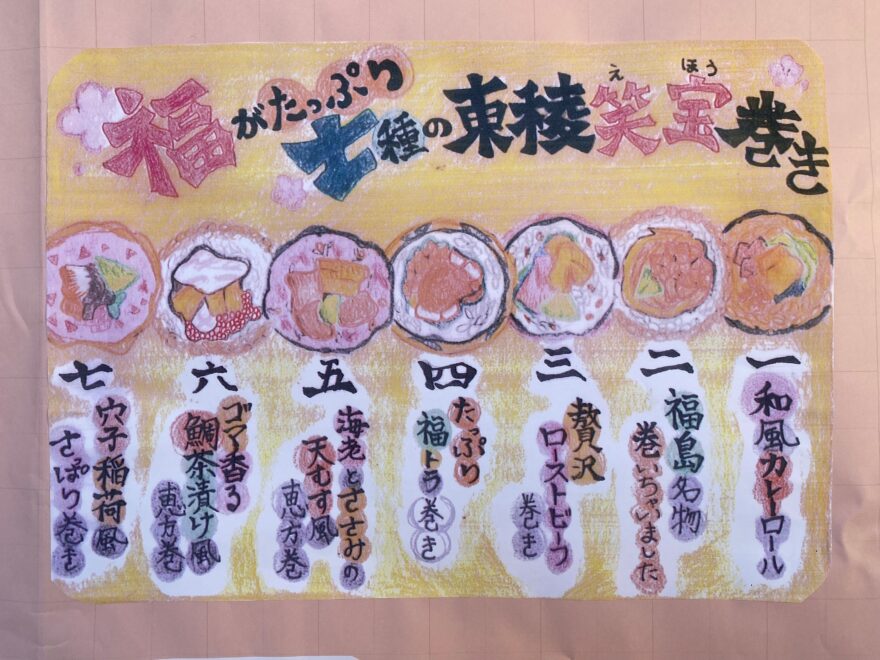 福がたっぷり
七種の東稜笑宝巻き
えほう
一
和風カレーロール
二
福島名物
巻いちゃいました
三
贅沢
ローストビーフ
巻き
四
たっぷり
福トラ巻き
五
海老とささみの
天むす風
恵方巻
六
ゴマ香る
鯛茶漬け風
恵方巻
七
穴子稲荷風
さっぱり巻き